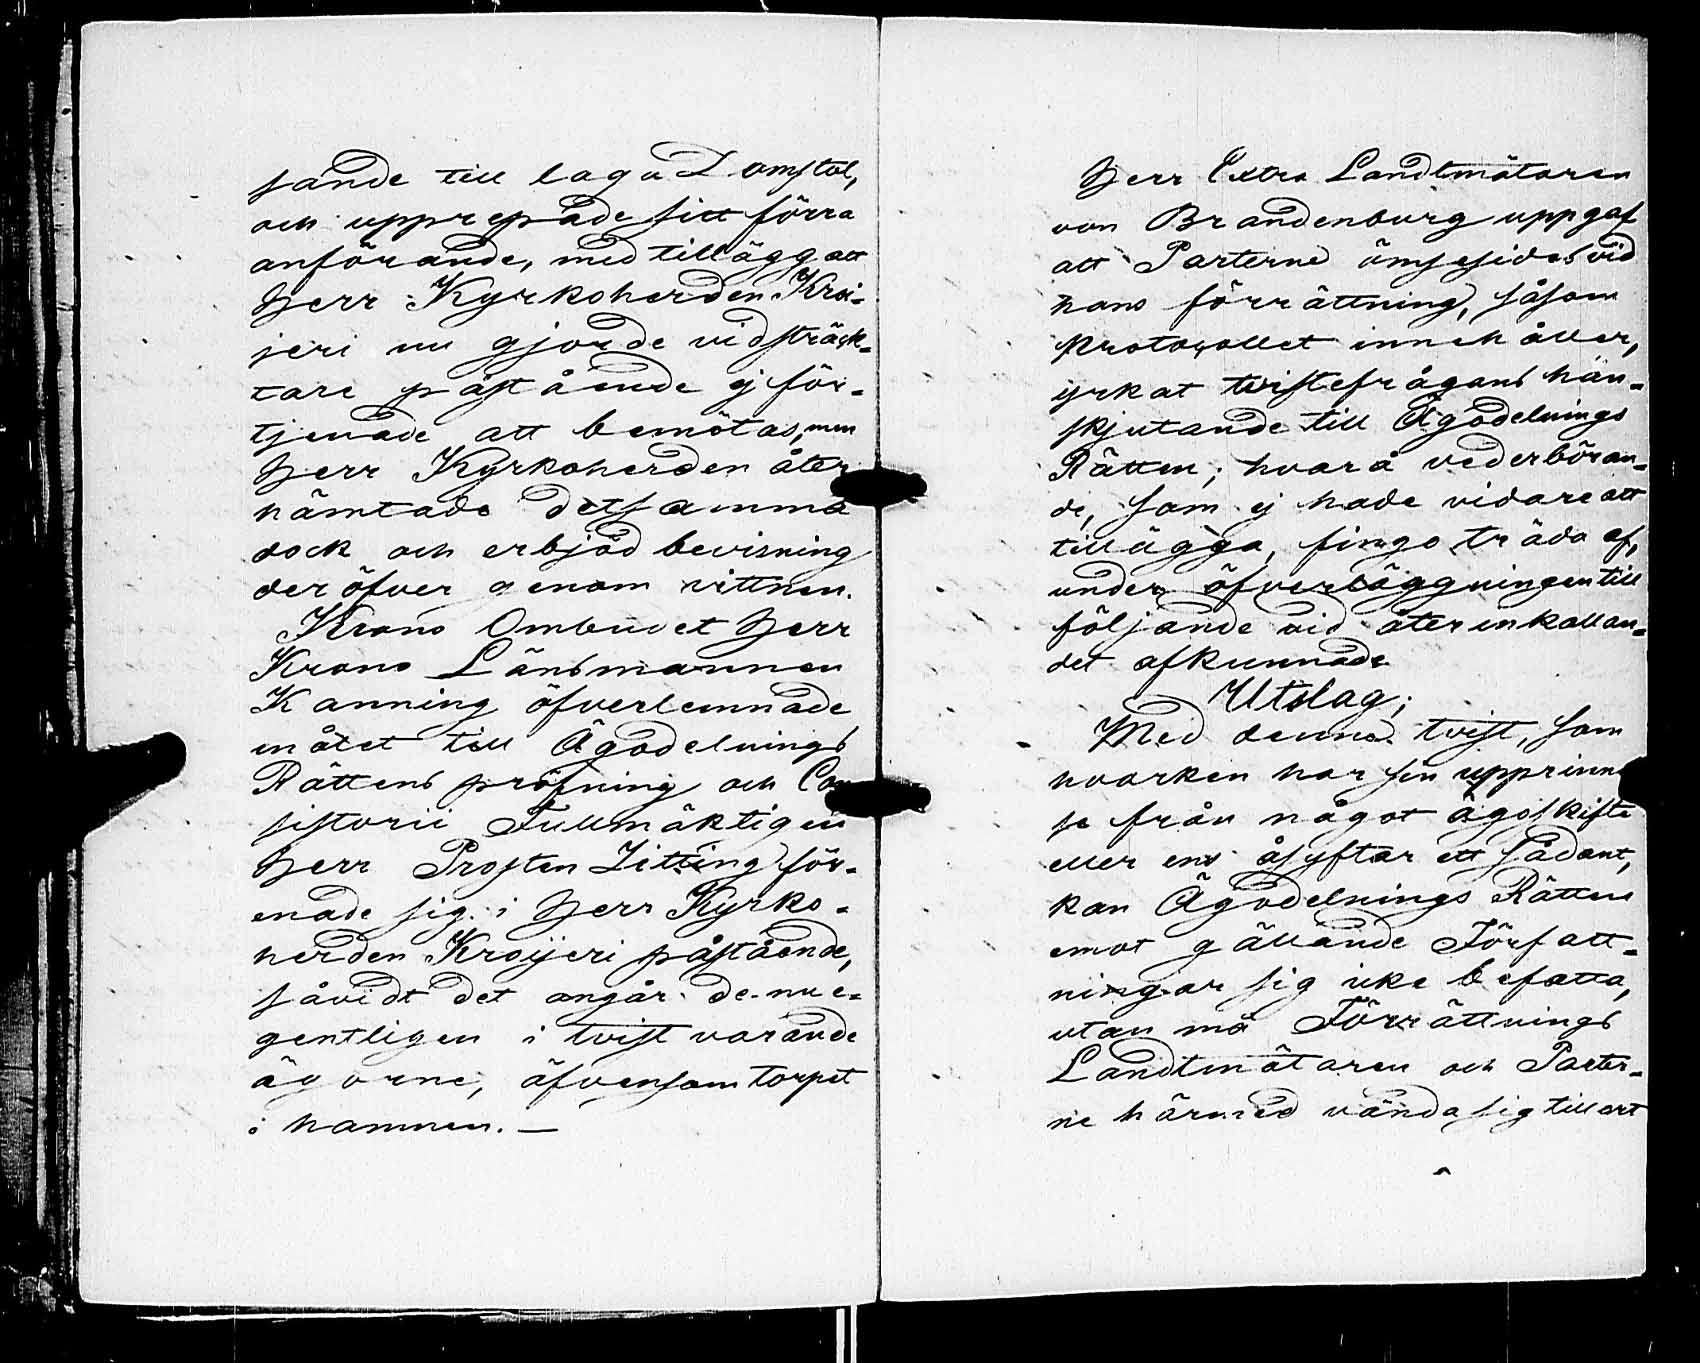 sände till laga Domstol,
och upprepade sitt förra
anförande, med tillägg att
Herr Kyrkoherden Kroi-
jeri nu gjorde vidsträck-
tare påstående ej för-
tjenade att bemötas, men
Herr Kyrkoherden åter
hämtade detsamma
dock och erbjöd bevisning
deröfver genom vittnen.
Krono Ombudet Herr
Krono Länsmannen
Kanning öfverlemnade
målet till Ägodelnings
Rättens pröfning och Con
sistorii Fullmäktigen
Herr Prosten Zitting för-
enade sig i Herr Kyrko-
herden Kroijeri påstående,
såvidt det angår de nu e-
gentligen i tvist varande
ägorne, äfvensom torpet
i hamnen. —
Herr Extra Landtmätaren
von Brandenburg uppgaf
att Parterne ömsesides vid
hans förrättning, såsom
Protocollet innehåller,
yrkat tvistefrågans hän-
skjutande till Ägodelnings
Rätten; hvarå vederböran-
de, som ej hade vidare att
tillägga, fingo träda af,
under öfverläggningen till
följande vid återinkallan-
det afkunnade
Utslag;
Med denna tvist, som
hvarken har sin upprinn
se från något ägoskifte
eller ens åsyftar ett sådant,
kan Ägodelnings Rätten
emot gällande Författ-
ningar sig icke befatta,
utan må Förrättnings
Landtmätaren och Parter-
ne härmed vända sig till ort